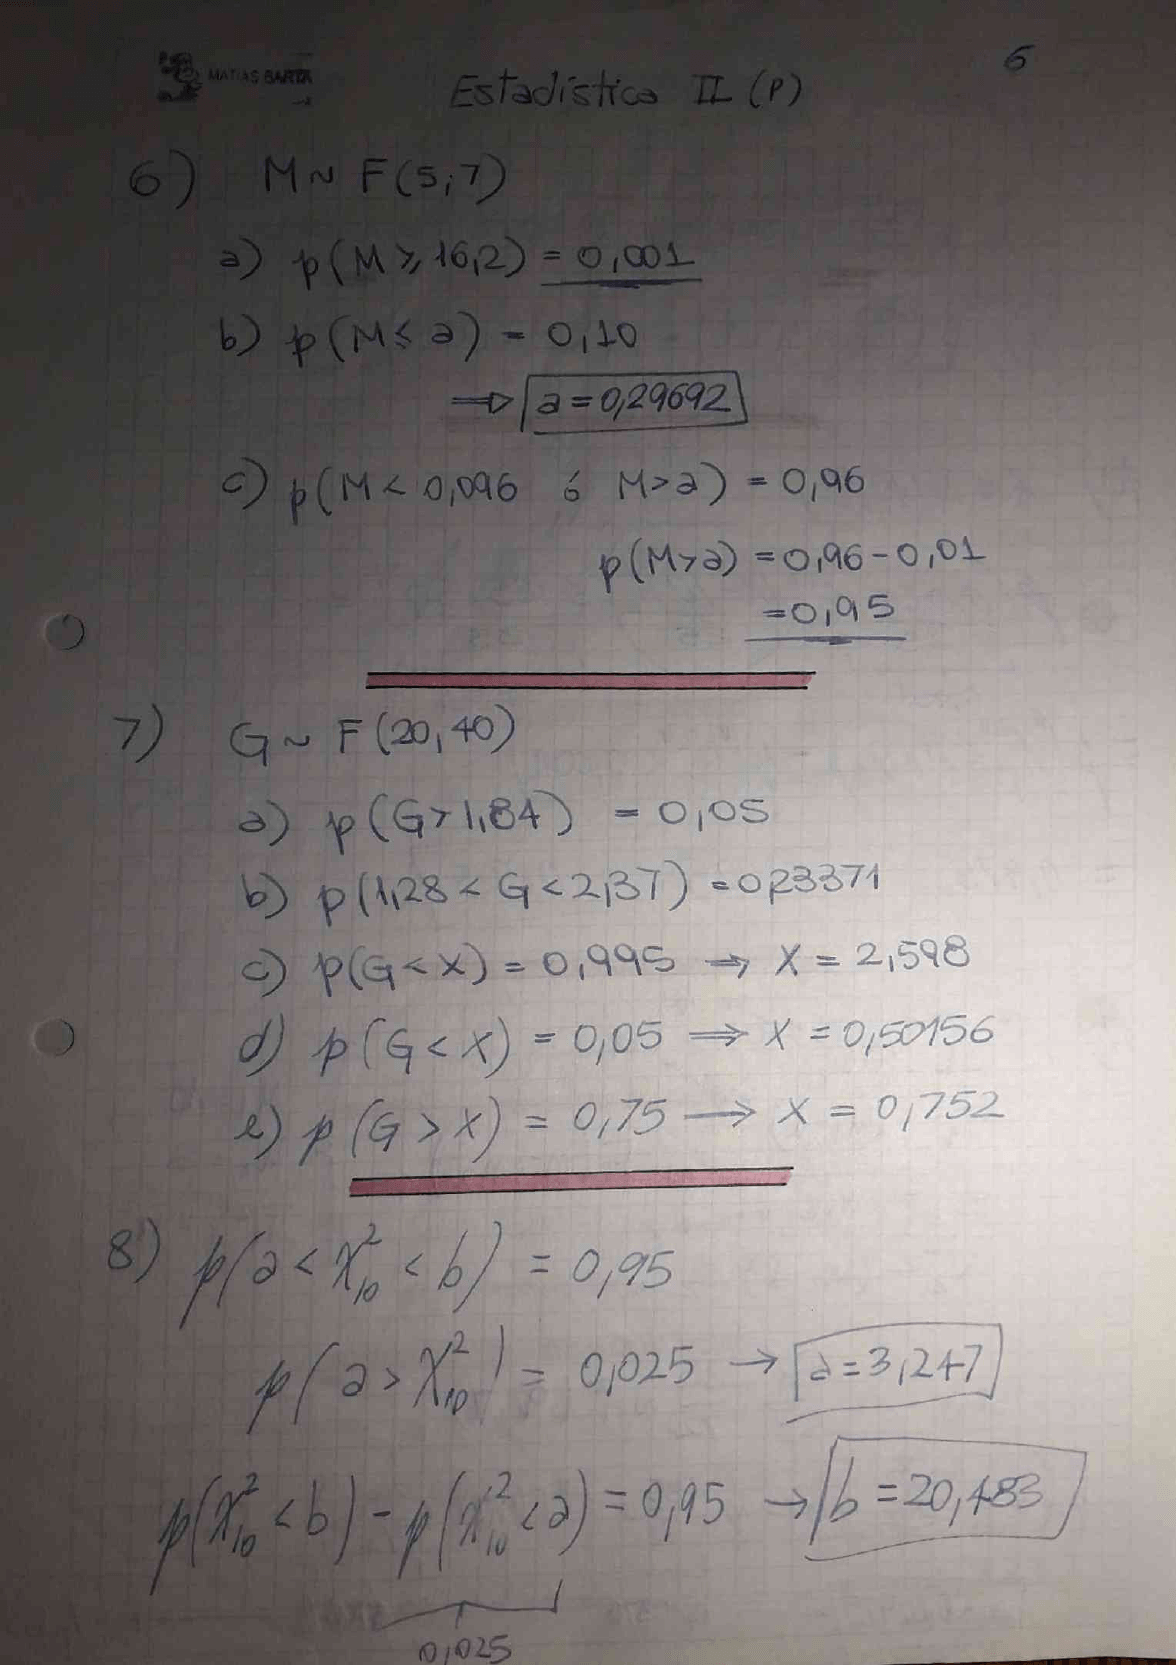 MATIAS BARTA
Estadística II (P)
6
6) M ~ F(5;7)
a) p(M ⩾ 16,2) = 0,001
b) p(M ≤ a) = 0,10
⇒ a = 0,29692
c) p(M < 0,096 ó M > a) = 0,96
p(M > a) = 0,96 - 0,01
= 0,95
7) G ~ F(20, 40)
a) p(G > 1,84) = 0,05
b) p(1,28 < G < 2,37) = 0,23371
c) p(G < X) = 0,995 → X = 2,598
d) p(G < X) = 0,05 ⇒ X = 0,50156
e) p(G > X) = 0,75 → X = 0,752
8) p(a < χ²₁₀ < b) = 0,95
p(a > χ²₁₀) = 0,025 → a = 3,247
p(χ²₁₀ < b) - p(χ²₁₀ < a) = 0,95 → b = 20,483
0,025